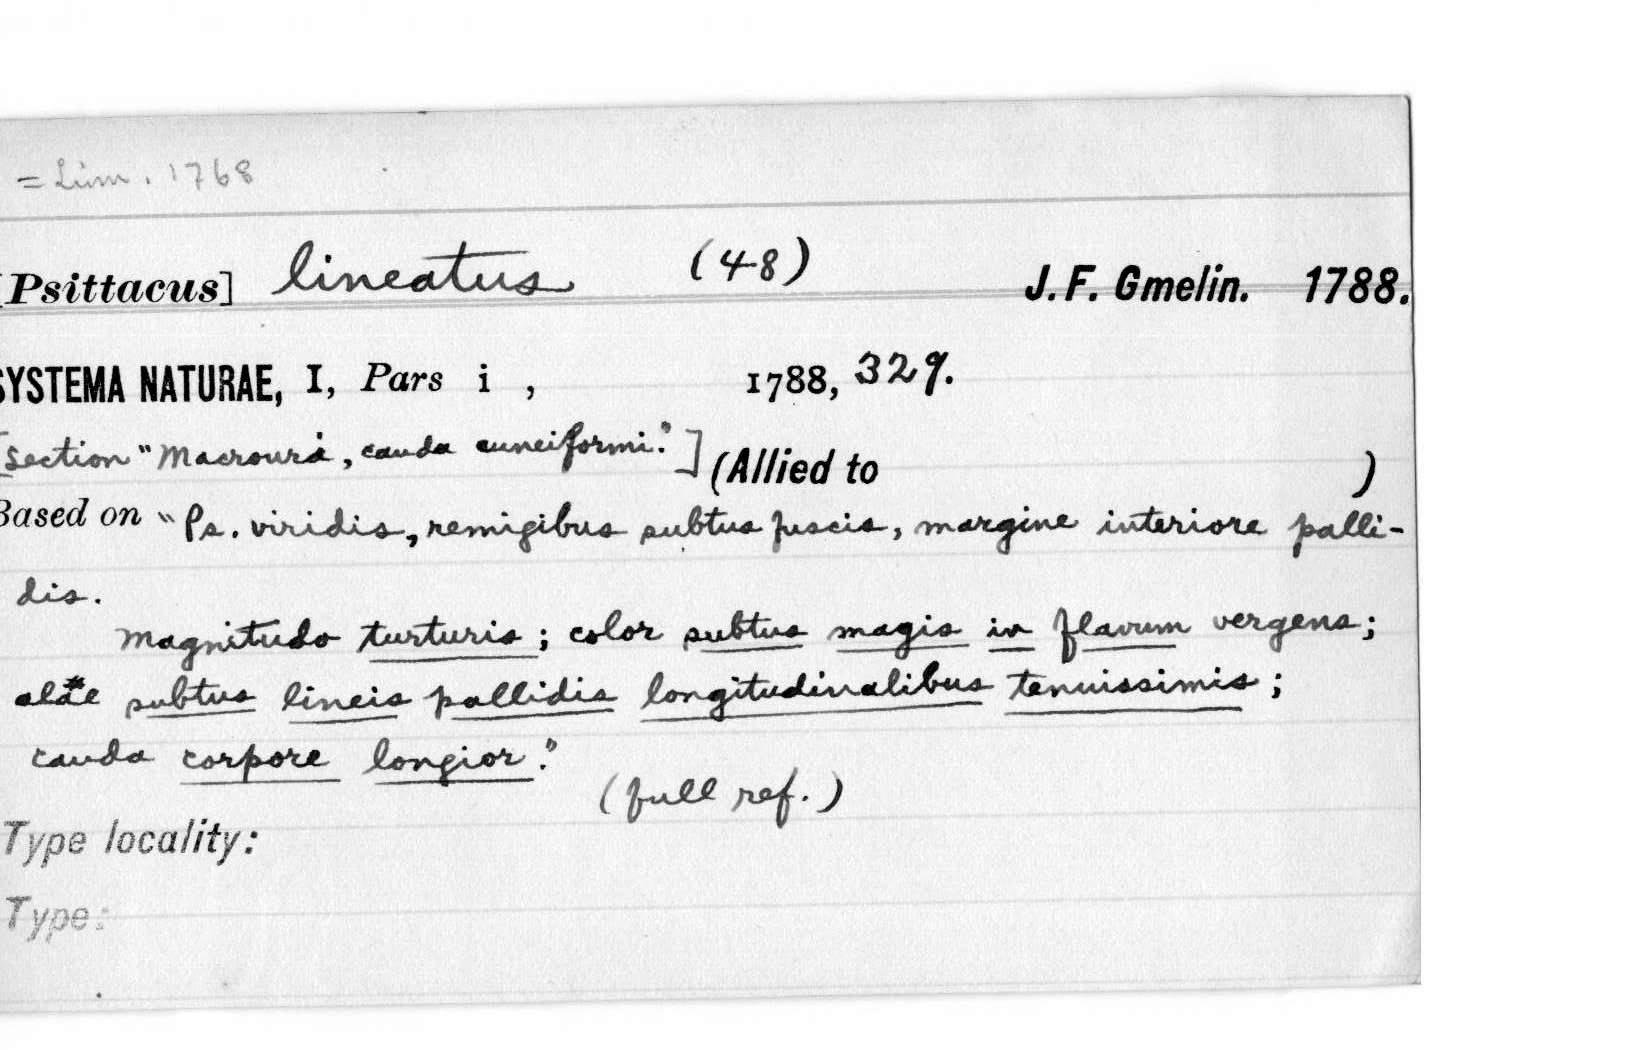 = Linn. 1768
[Psittacus] lineatus (48) J. F. Gmelin. 1788.
SYSTEMA NATURAE, I, Pars i , 1788, 329.
[section "Macrouri, cauda cuneiformi."] (Allied to )
Based on "Ps. viridis, remigibus subtus fuscis, margine interiore palli-
dis.
Magnitudo turturis; color subtus magis in flavum vergens;
alae subtus lineis pallidis longitudinalibus tenuissimis;
cauda corpore longior."
(full ref.)
Type locality:
Type: